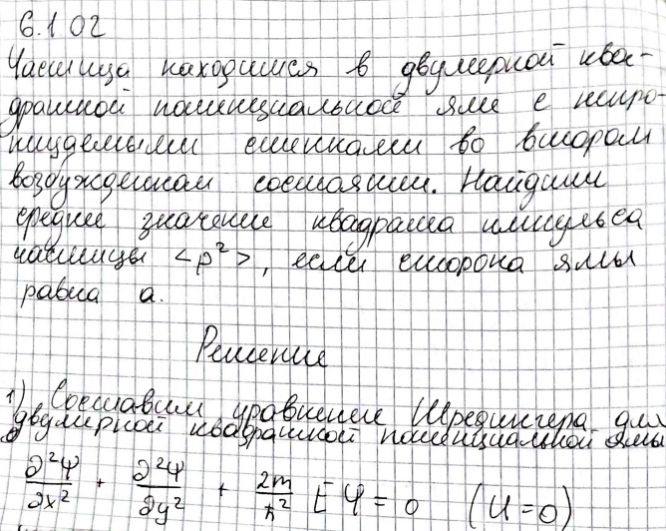 6.1.02
Частица находится в двумерной ква-
дратной потенциальной яме с непро-
ницаемыми стенками во втором
возбужденном состоянии. Найдит
среднее значение квадрата импульса
частицы <p²>, если сторона ямы
равна a.
Решение
1) Составим уравнение Шредингера для
двумерной квадратной потенциальной ямы
∂²Ψ/∂x² + ∂²Ψ/∂y² + 2m/ħ² EΨ = 0 (U=0)